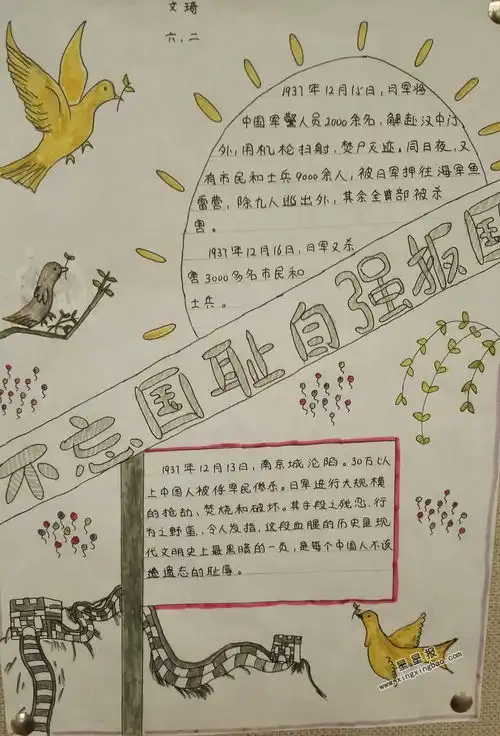 文琦
六.二
1937年12月15日,日军将
中国军警人员2000余名,解赴汉中门
外,用机枪扫射,焚尸灭迹。同日夜,又
有市民和士兵9000余人,被日军押往海军鱼
雷营,除九人逃出外,其余全部被杀
害。
1937年12月16日,日军又杀
害3000多名市民和
士兵。
不忘国耻自强报国
1937年12月13日,南京城沦陷。30万以
上中国人被侵军民惨杀。日军进行大规模
的抢劫,焚烧和破坏。其手段之残忍,行
为之野蛮,令人发指,这段血腥的历史是现
代文明史上最黑暗的一页,是每个中国人不该
遗忘的耻辱。
星星报
www.xingxingbao.com